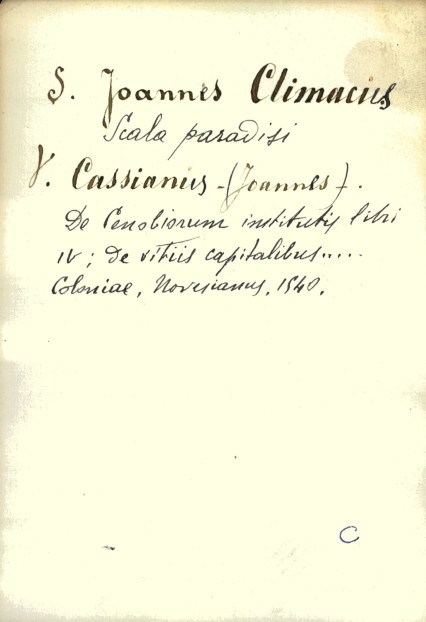 S. Joannes Climacus
Scala paradisi
V. Cassianus - (Joannes) - .
De Cenobiorum institutis libri
IV ; de vitiis capitalibus.....
Coloniae, Novesianus, 1540.
C